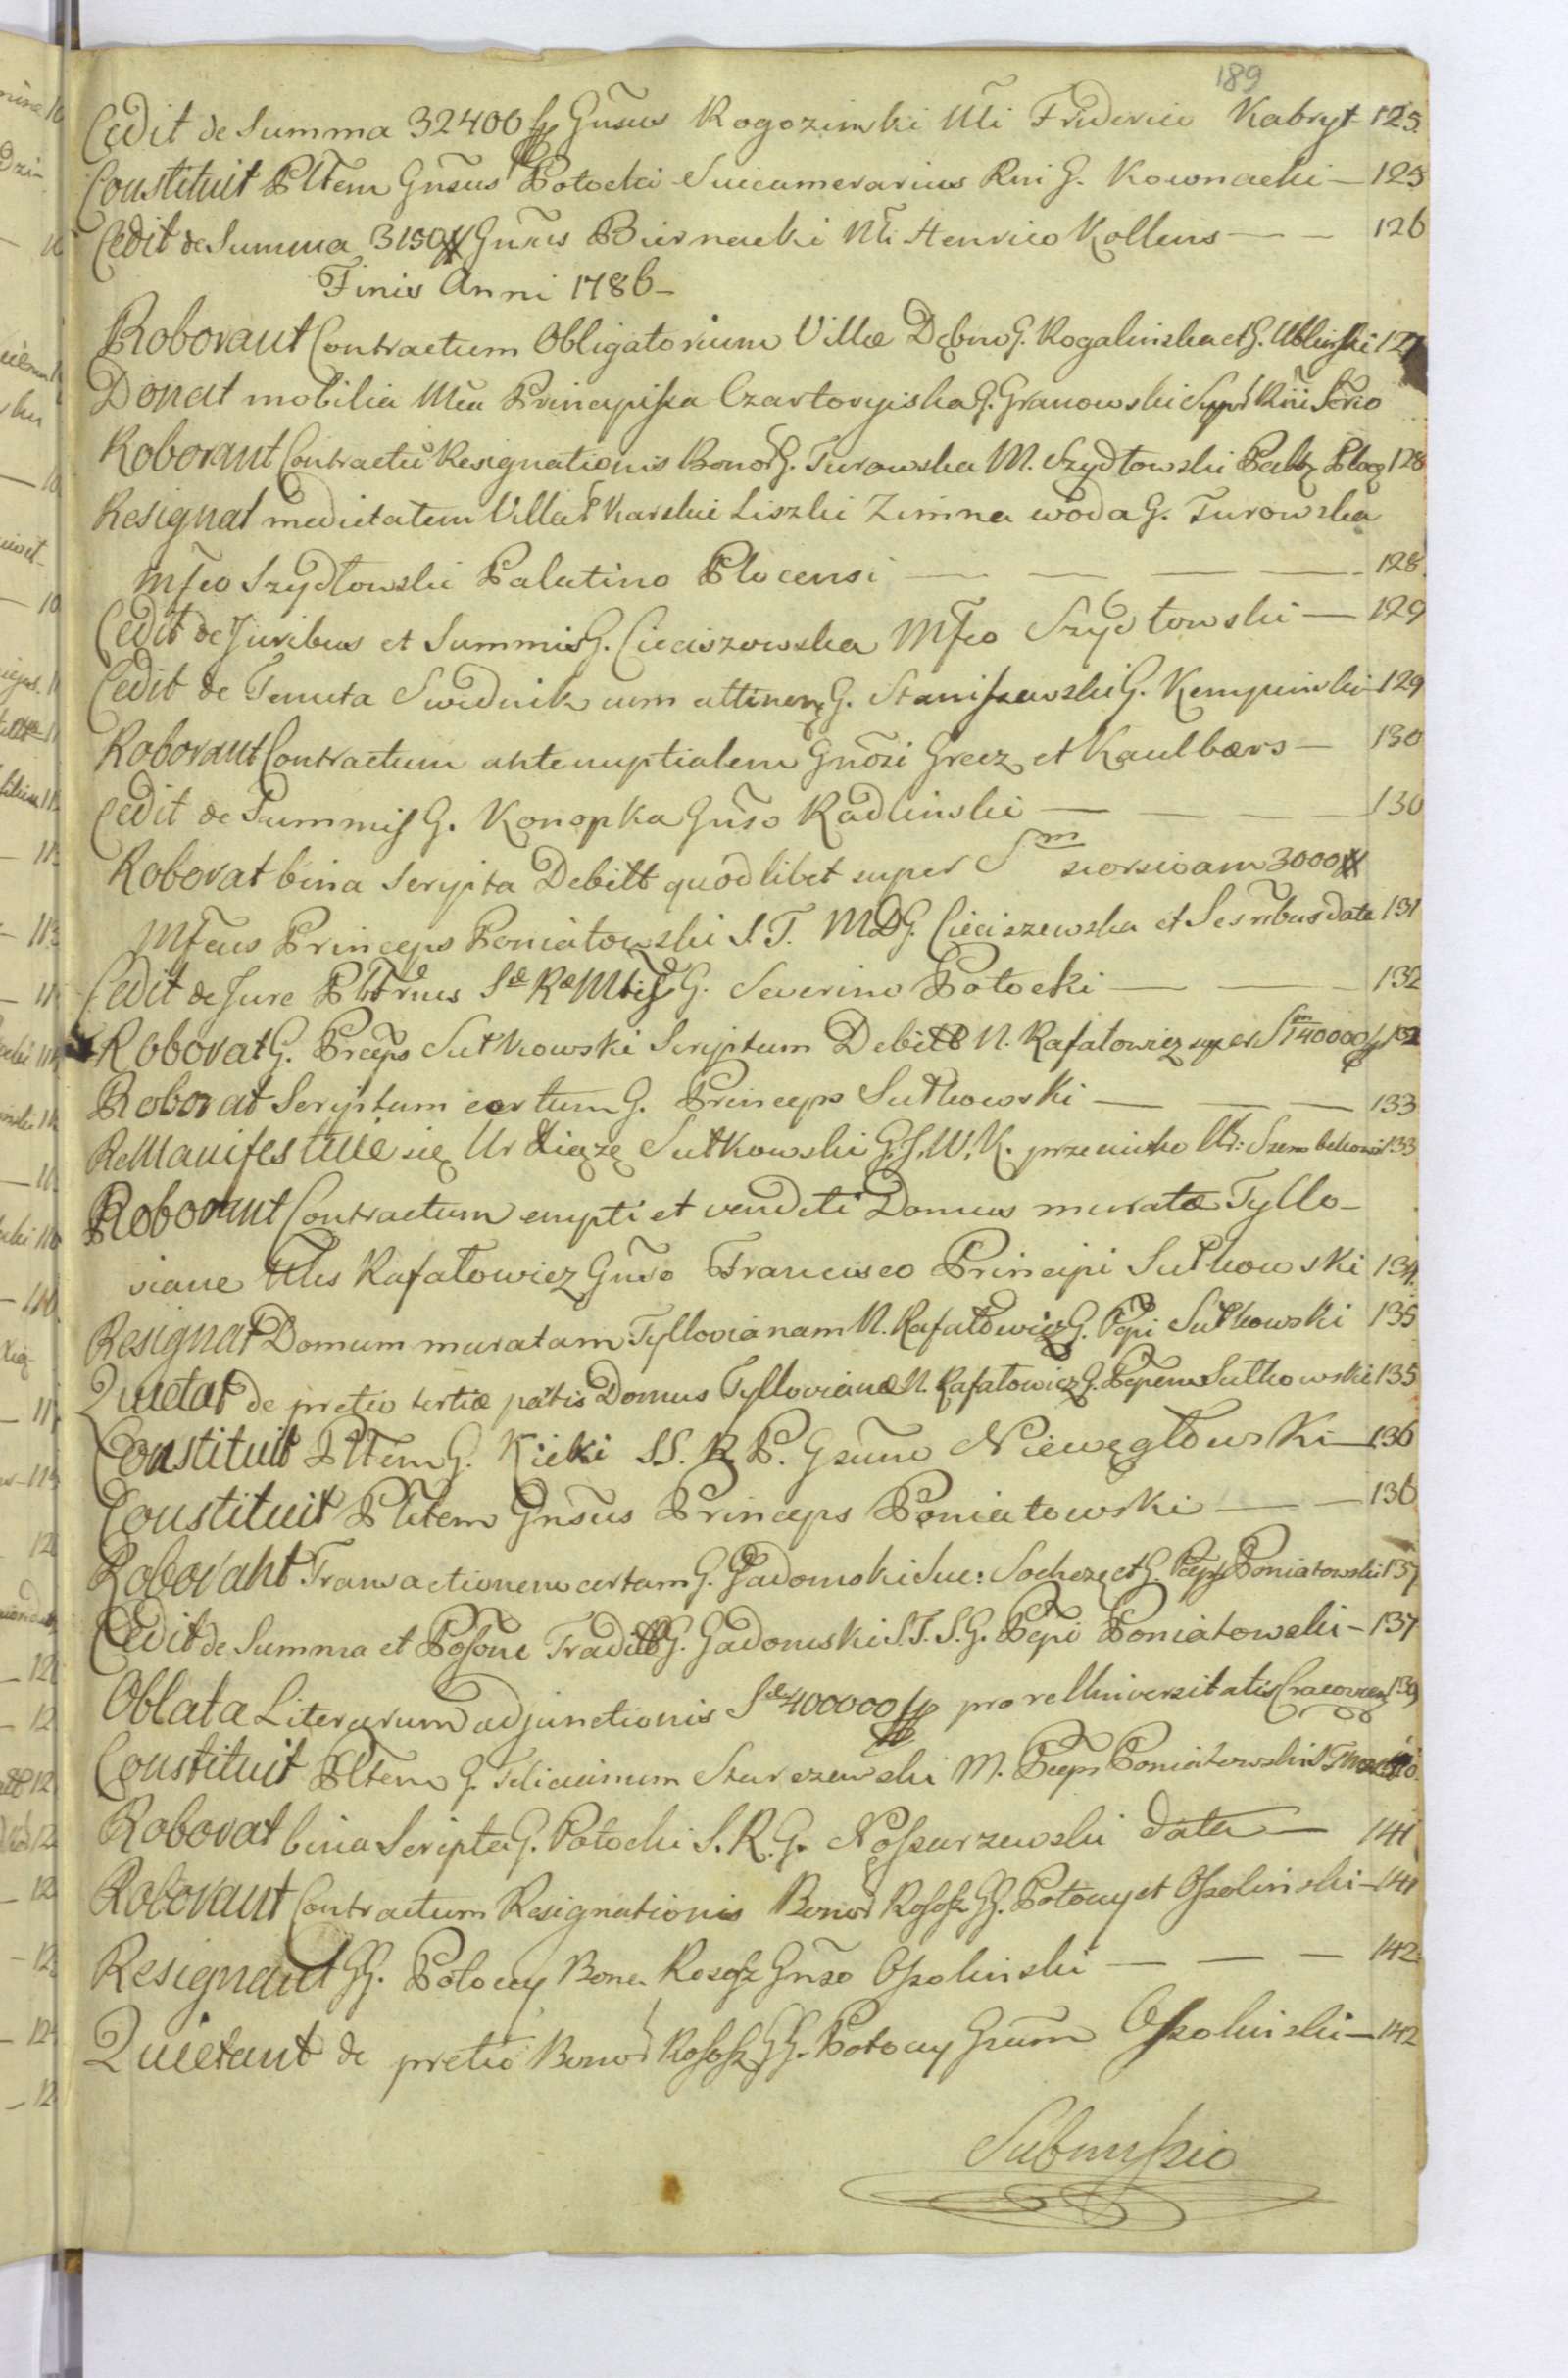 189
Cedit de Summa 32400 Gnsus Rogozinski Nli Friderico Kabryt 125.
Constituit Pltem Gnsus Potocki Succamerarius Rni G. Kownacki — 125
Cedit de Summa 3150 Gnsus Biernacki Nli Henrico Kollens — — 126
Finis Anni 1786 —
Roborant Contractum Obligatorium Villæ Dębno G. Rogalinska et G. Ublinski 127
Donat mobilia Principissa Czartoryiska G. Granowski
Roborant Contractū Resignationis Bonor G. Turowska M. Szydłowski 128
Resignat medietatem Villar Karskie Liszki Zimna woda G. Turowska
Mfco Szydłowski Palatino Plocensi — — — — 128.
Cedit de Juribus et Summis G. Cieciszewska Mfco Szydłowski — 129
Cedit de Tenuta Swidnik cum attinen G. Staniszewski G. Kempinski — 129
Roborant Contractum antenuptialem Gnosi Grecz et Kaulbars — 130
Cedit de Summis G. Konopka Gnso Radlinski — — — — 130
Roborat bina Scripta Debitt quodlibet super Sm seorsivam 3000
Mfcus Princeps Poniatowski S. T. M. D. G. Cieciszewska et Ssribus data 131
Cedit de Jure G. Severino Potocki — — — 132
Roborat G. Prceps Sułkowski Scriptum Debitt N. Rafałowicz super Sm 140000 132
Roborat Scriptum certum G. Princeps Sułkowski — — — 133
ReManifestuie się Ur Xiąze Sułkowski G. J. W. K. przeciwko Ur: Szembekowi 133
Roborant Contractum empti et venditi Domus muratæ Tyllo-
viane Nlis Rafałowicz Gnso Francisco Principi Sułkowski 134.
Resignat Domum muratam Tyllovianam N. Rafałowicz G. Ppi Sułkowski 135
Quietat de pretio tertiæ pātis Domus Tyllovianæ N. Rafałowicz G. Ppem Sułkowski 135
Constituit Pltem G. Kicki S. S. R. P. Gsum Niewęgłowski — 136
Constituit Pltem Gnsus Princeps Poniatowski — — 136
Roborant Transactionem certam G. Gadomski Suc: Sochcz et G. Pceps Poniatowski 137
Cedit de Summa et Possone Traditt G. Gadomski S. T. S. G. Ppi Poniatowski — 137
Oblata Literarum adjunctionis Sæ 400000 pro re Universitatis Cracovien 139
Constituit Pltem G. Felicianum Starczewski M. Pceps Poniatowski
Roborat bina Scripta G. Potocki S. R. G. Noskarzewski data — 141
Roborant Contractum Resignationis Bonor Rososz GG. Potoccy et Ossolinski — 141
Resignant GG. Potoccy Bona Rososz Gnso Ossolinski — — — 142.
Quietant de pretio Bonor Rososz GG. Potoccy Gsum Ossolinski — 142
Submissio